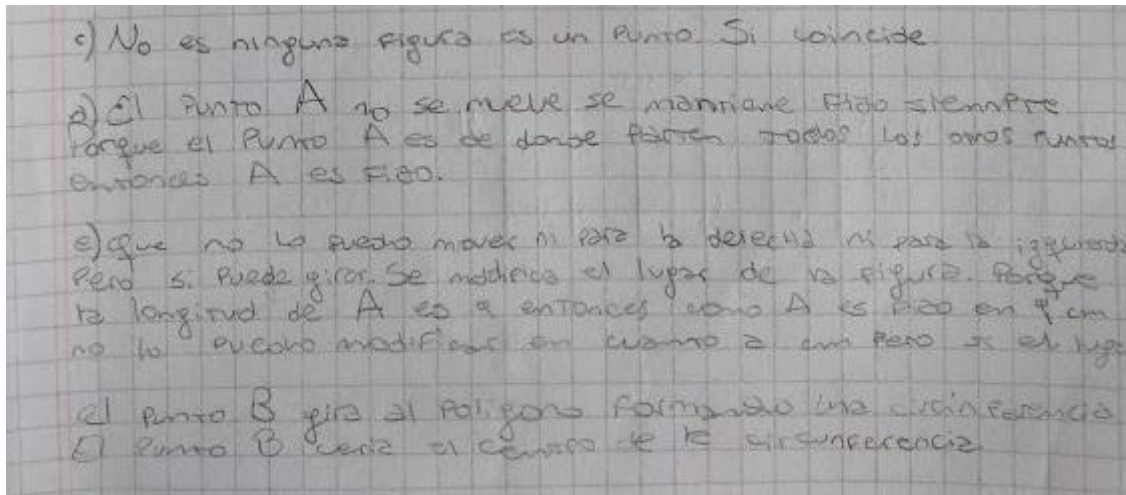 c) No es ninguna figura es un punto Si coincide
d) El punto A no se mueve se mantiene fijo siempre
Porque el punto A es de donde parten todos los otros puntos
entonces A es fijo.
e) que no lo puedo mover ni para la derecha ni para la izquierda
Pero si puede girar. Se modifica el lugar de la figura. Porque
la longitud de A es 9 entonces como A es fijo en cm
no lo puedo modificar en cuanto a cm pero si el
El punto B gira al poligono formando una circunferencia
El punto B seria el centro de la circunferencia